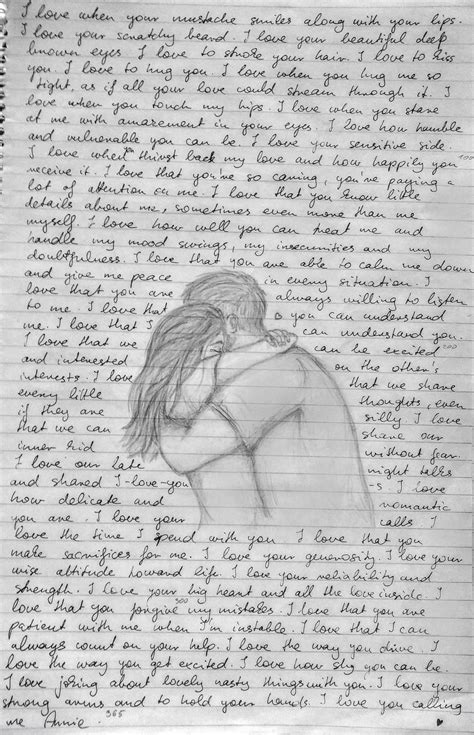 I love when your mustache smiles along with your lips.
I love your scratchy beard. I love your beautiful deep
brown eyes. I love to stroke your hair. I love to kiss
you. I love to hug you. I love when you hug me so
tight, as if all your love could stream through it. I
love when you touch my hips. I love when you stare
at me with amazement in your eyes. I love how humble
and vulnerable you can be. I love your sensitive side.
I love when you thirst back my love and how happily you
receive it. I love that you're so caring, you're paying a
lot of attention on me. I love that you know little
details about me, sometimes even more than me
myself. I love how well you can treat me and
handle my mood swings, my insecurities and my
doubtfulness. I love that you are able to calm me down
and give me peace in every situation. I
love that you are always willing to listen
to me. I love that you can understand
me. I love that I can understand you.
I love that we can be excited
and interested on the other's
interests. I love that we share
every little thoughts, even
if they are silly. I love
that we can share our
inner kid without fear.
I love our late night talks
and shared I-love-you -s. I love
how delicate and romantic
you are. I love your calls. I
love the time I spend with you. I love that you
make sacrifices for me. I love your generosity. I love your
wise attitude toward life. I love your reliability and
strength. I love your big heart and all the love inside. I
love that you forgive my mistakes. I love that you are
patient with me when I'm instable. I love that I can
always count on your help. I love the way you drive. I
love the way you get excited. I love how shy you can be.
I love joking about lovely nasty things with you. I love your
strong arms and to hold your hands. I love you calling
me Annie. 365